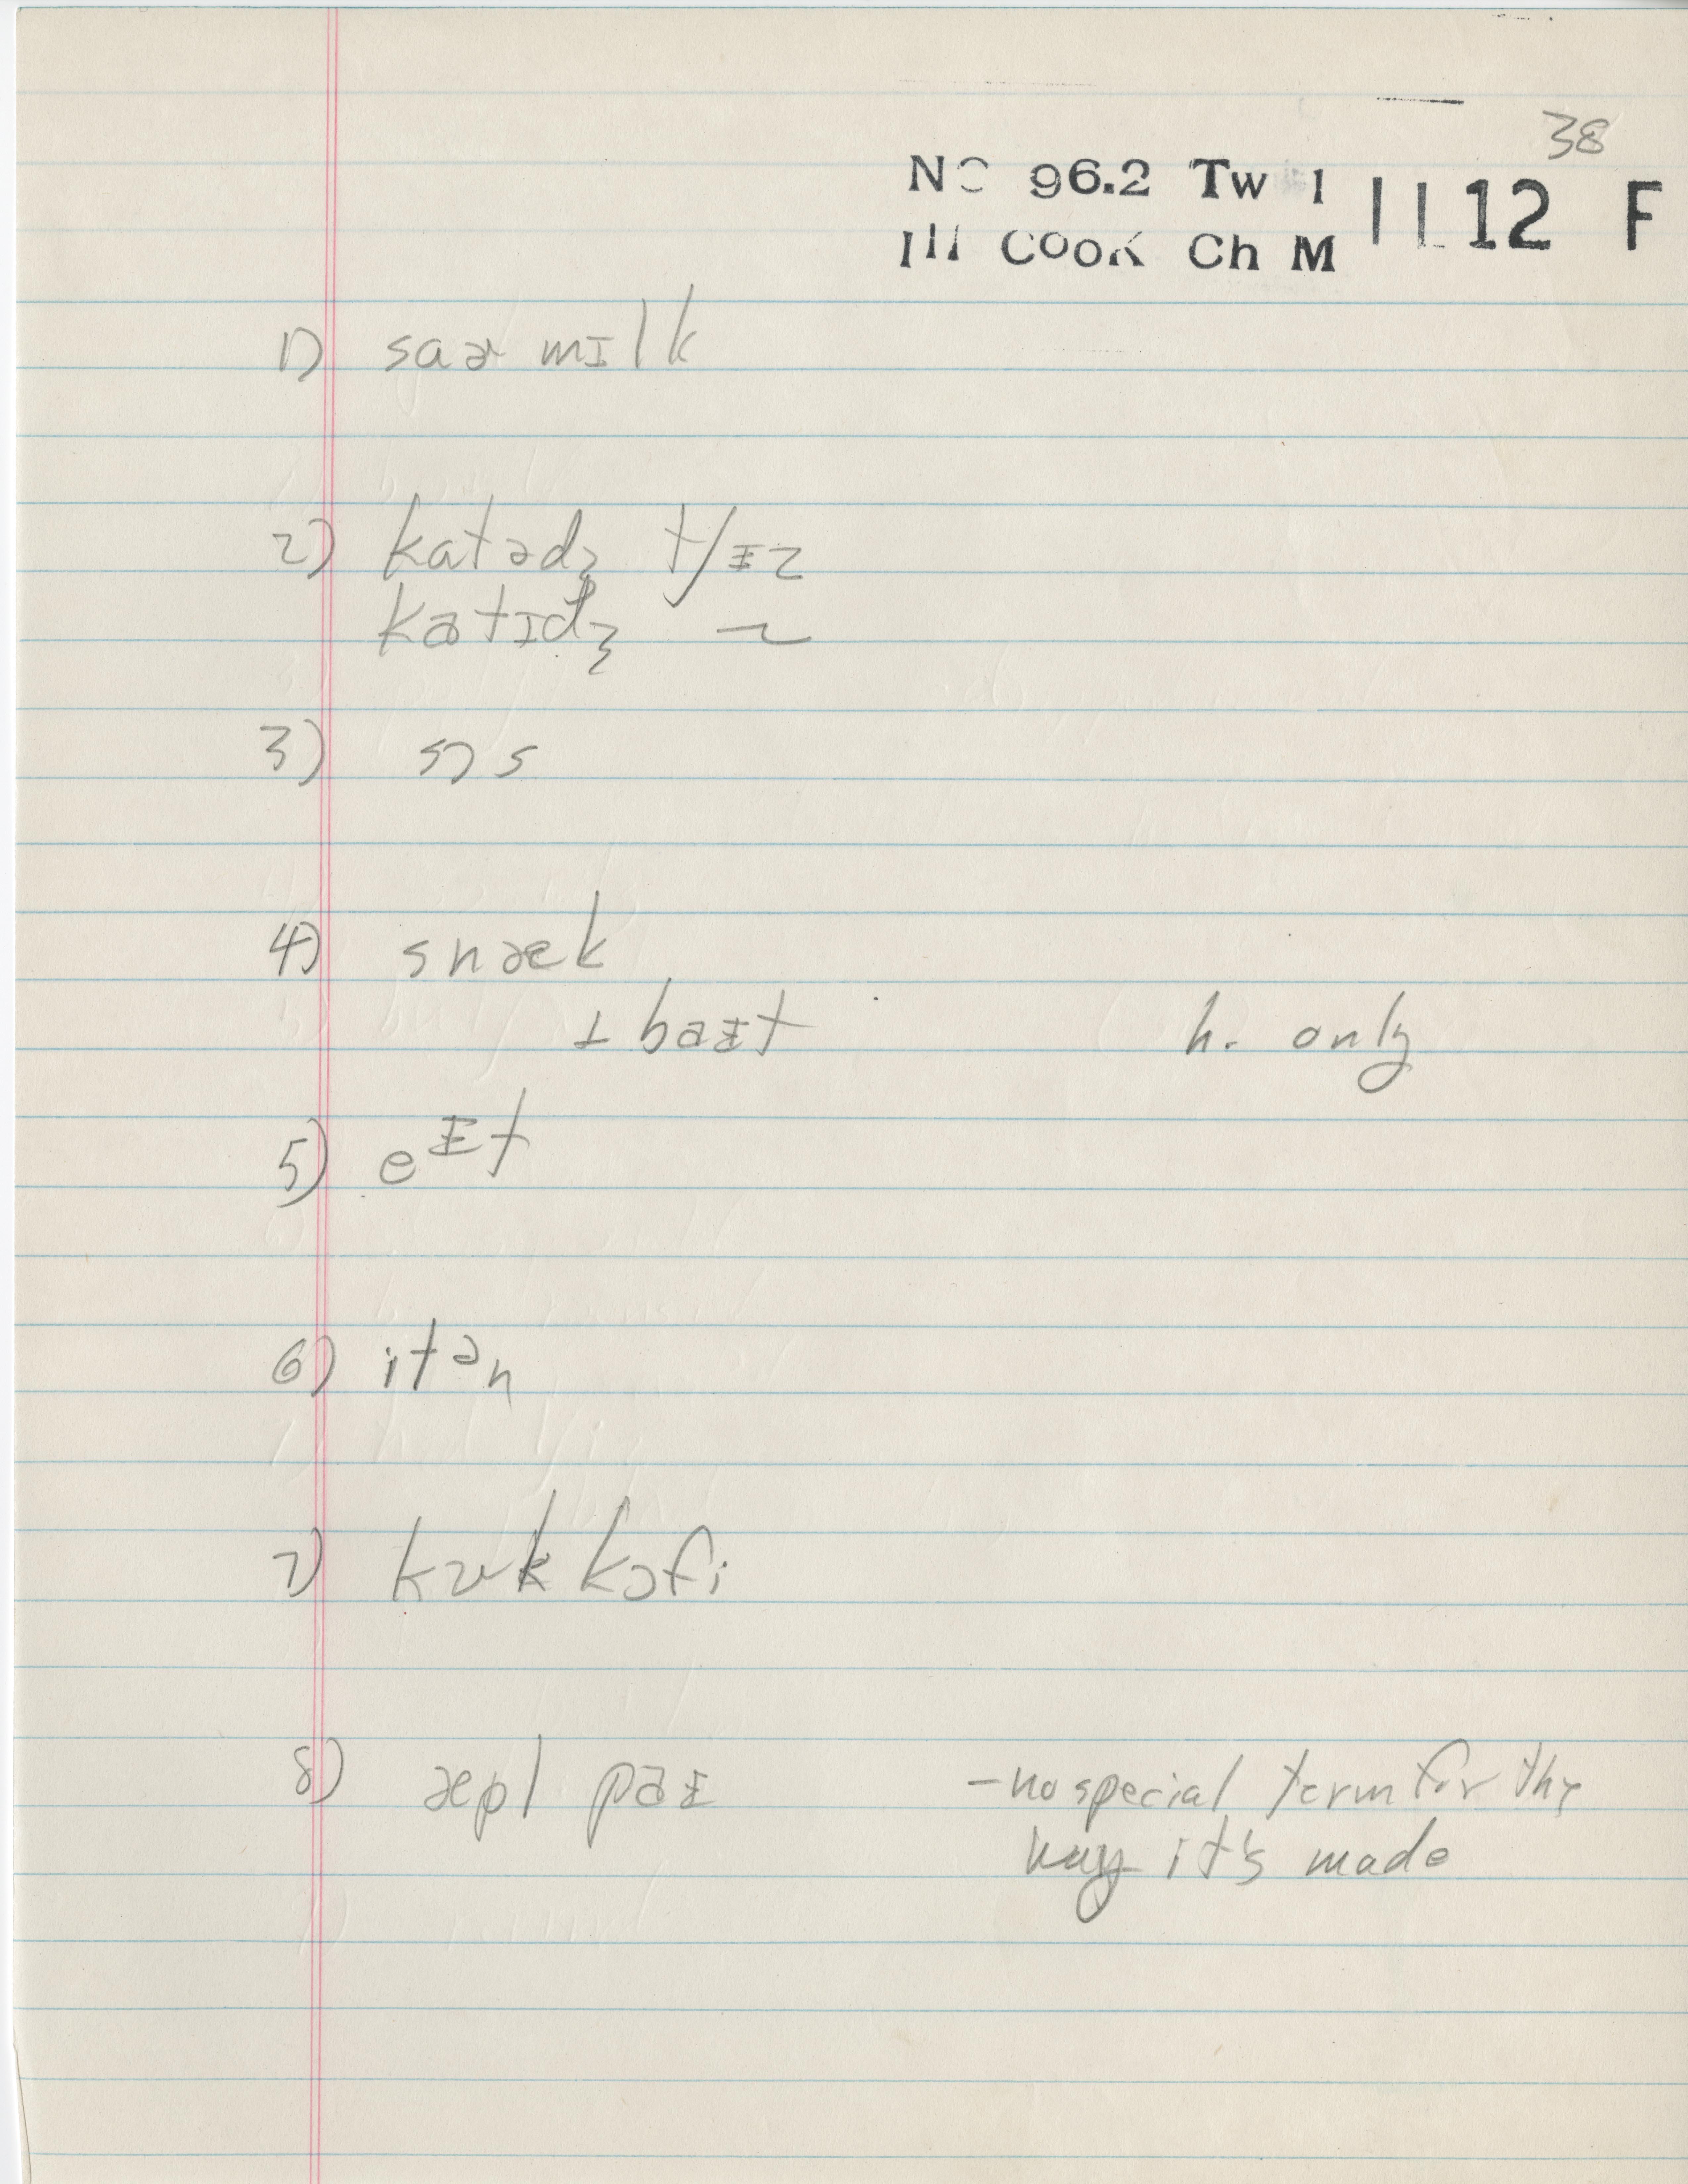 38
NC 96.2 Tw 1
Ill Cook Ch M 1112 F
1) saɚ mɪlk
2) katədʒ tʃɪz
katɪdʒ ~
3) sɔs
4) snæk
ɪ baɪt h. only
5) eᶦt
6) itən
7) kʊk kɔfi
8) æpl paɪ - no special term for the
way it's made